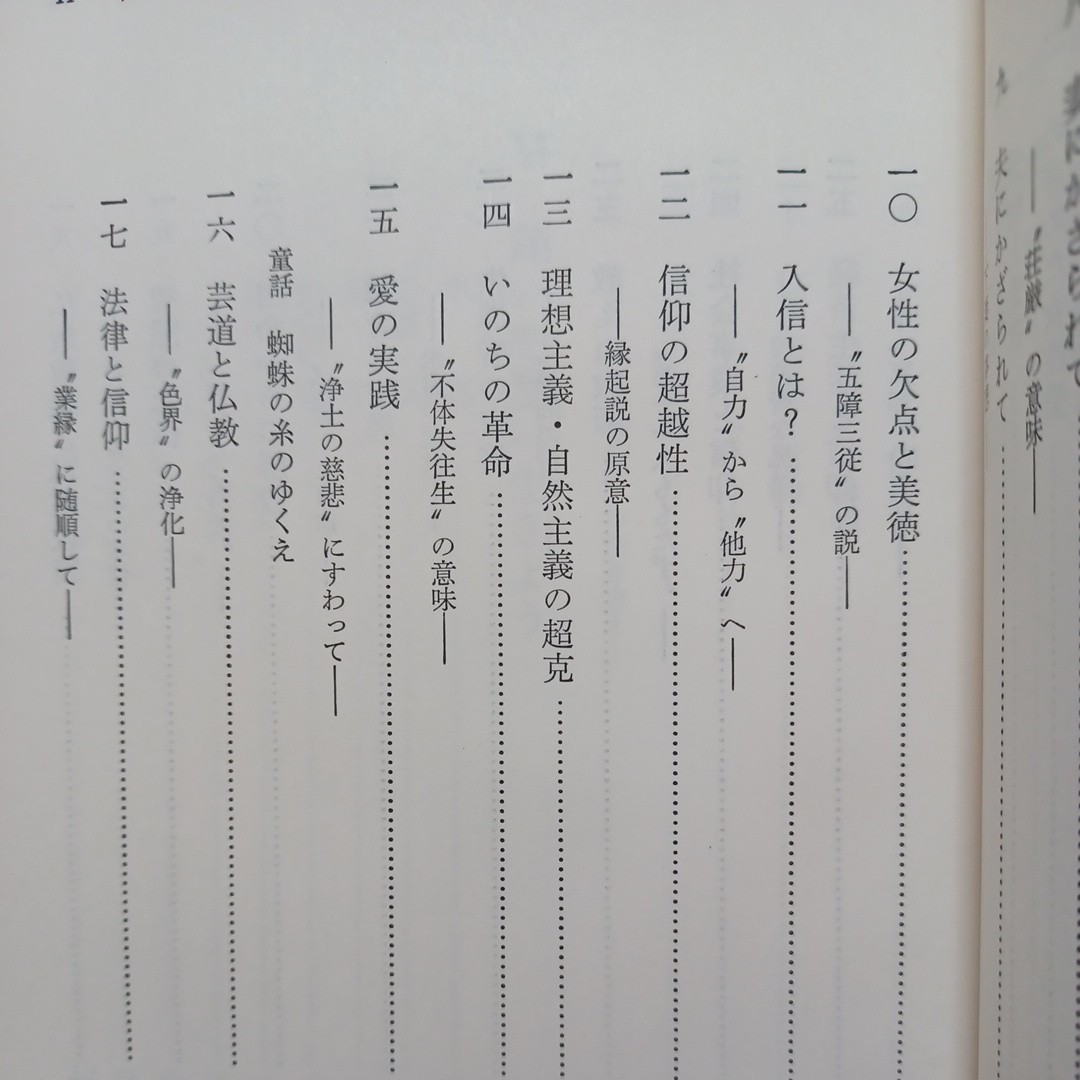 九　夫にかざられて
――〝荘厳〟の意味――
一〇　女性の欠点と美徳
――〝五障三従〟の説――
一一　入信とは？
――〝自力〟から〝他力〟へ――
一二　信仰の超越性
――縁起説の原意――
一三　理想主義・自然主義の超克
一四　いのちの革命
――〝不体失往生〟の意味――
一五　愛の実践
――〝浄土の慈悲〟にすわって――
童話　蜘蛛の糸のゆくえ
一六　芸道と仏教
――〝色界〟の浄化――
一七　法律と信仰
――〝業縁〟に随順して――